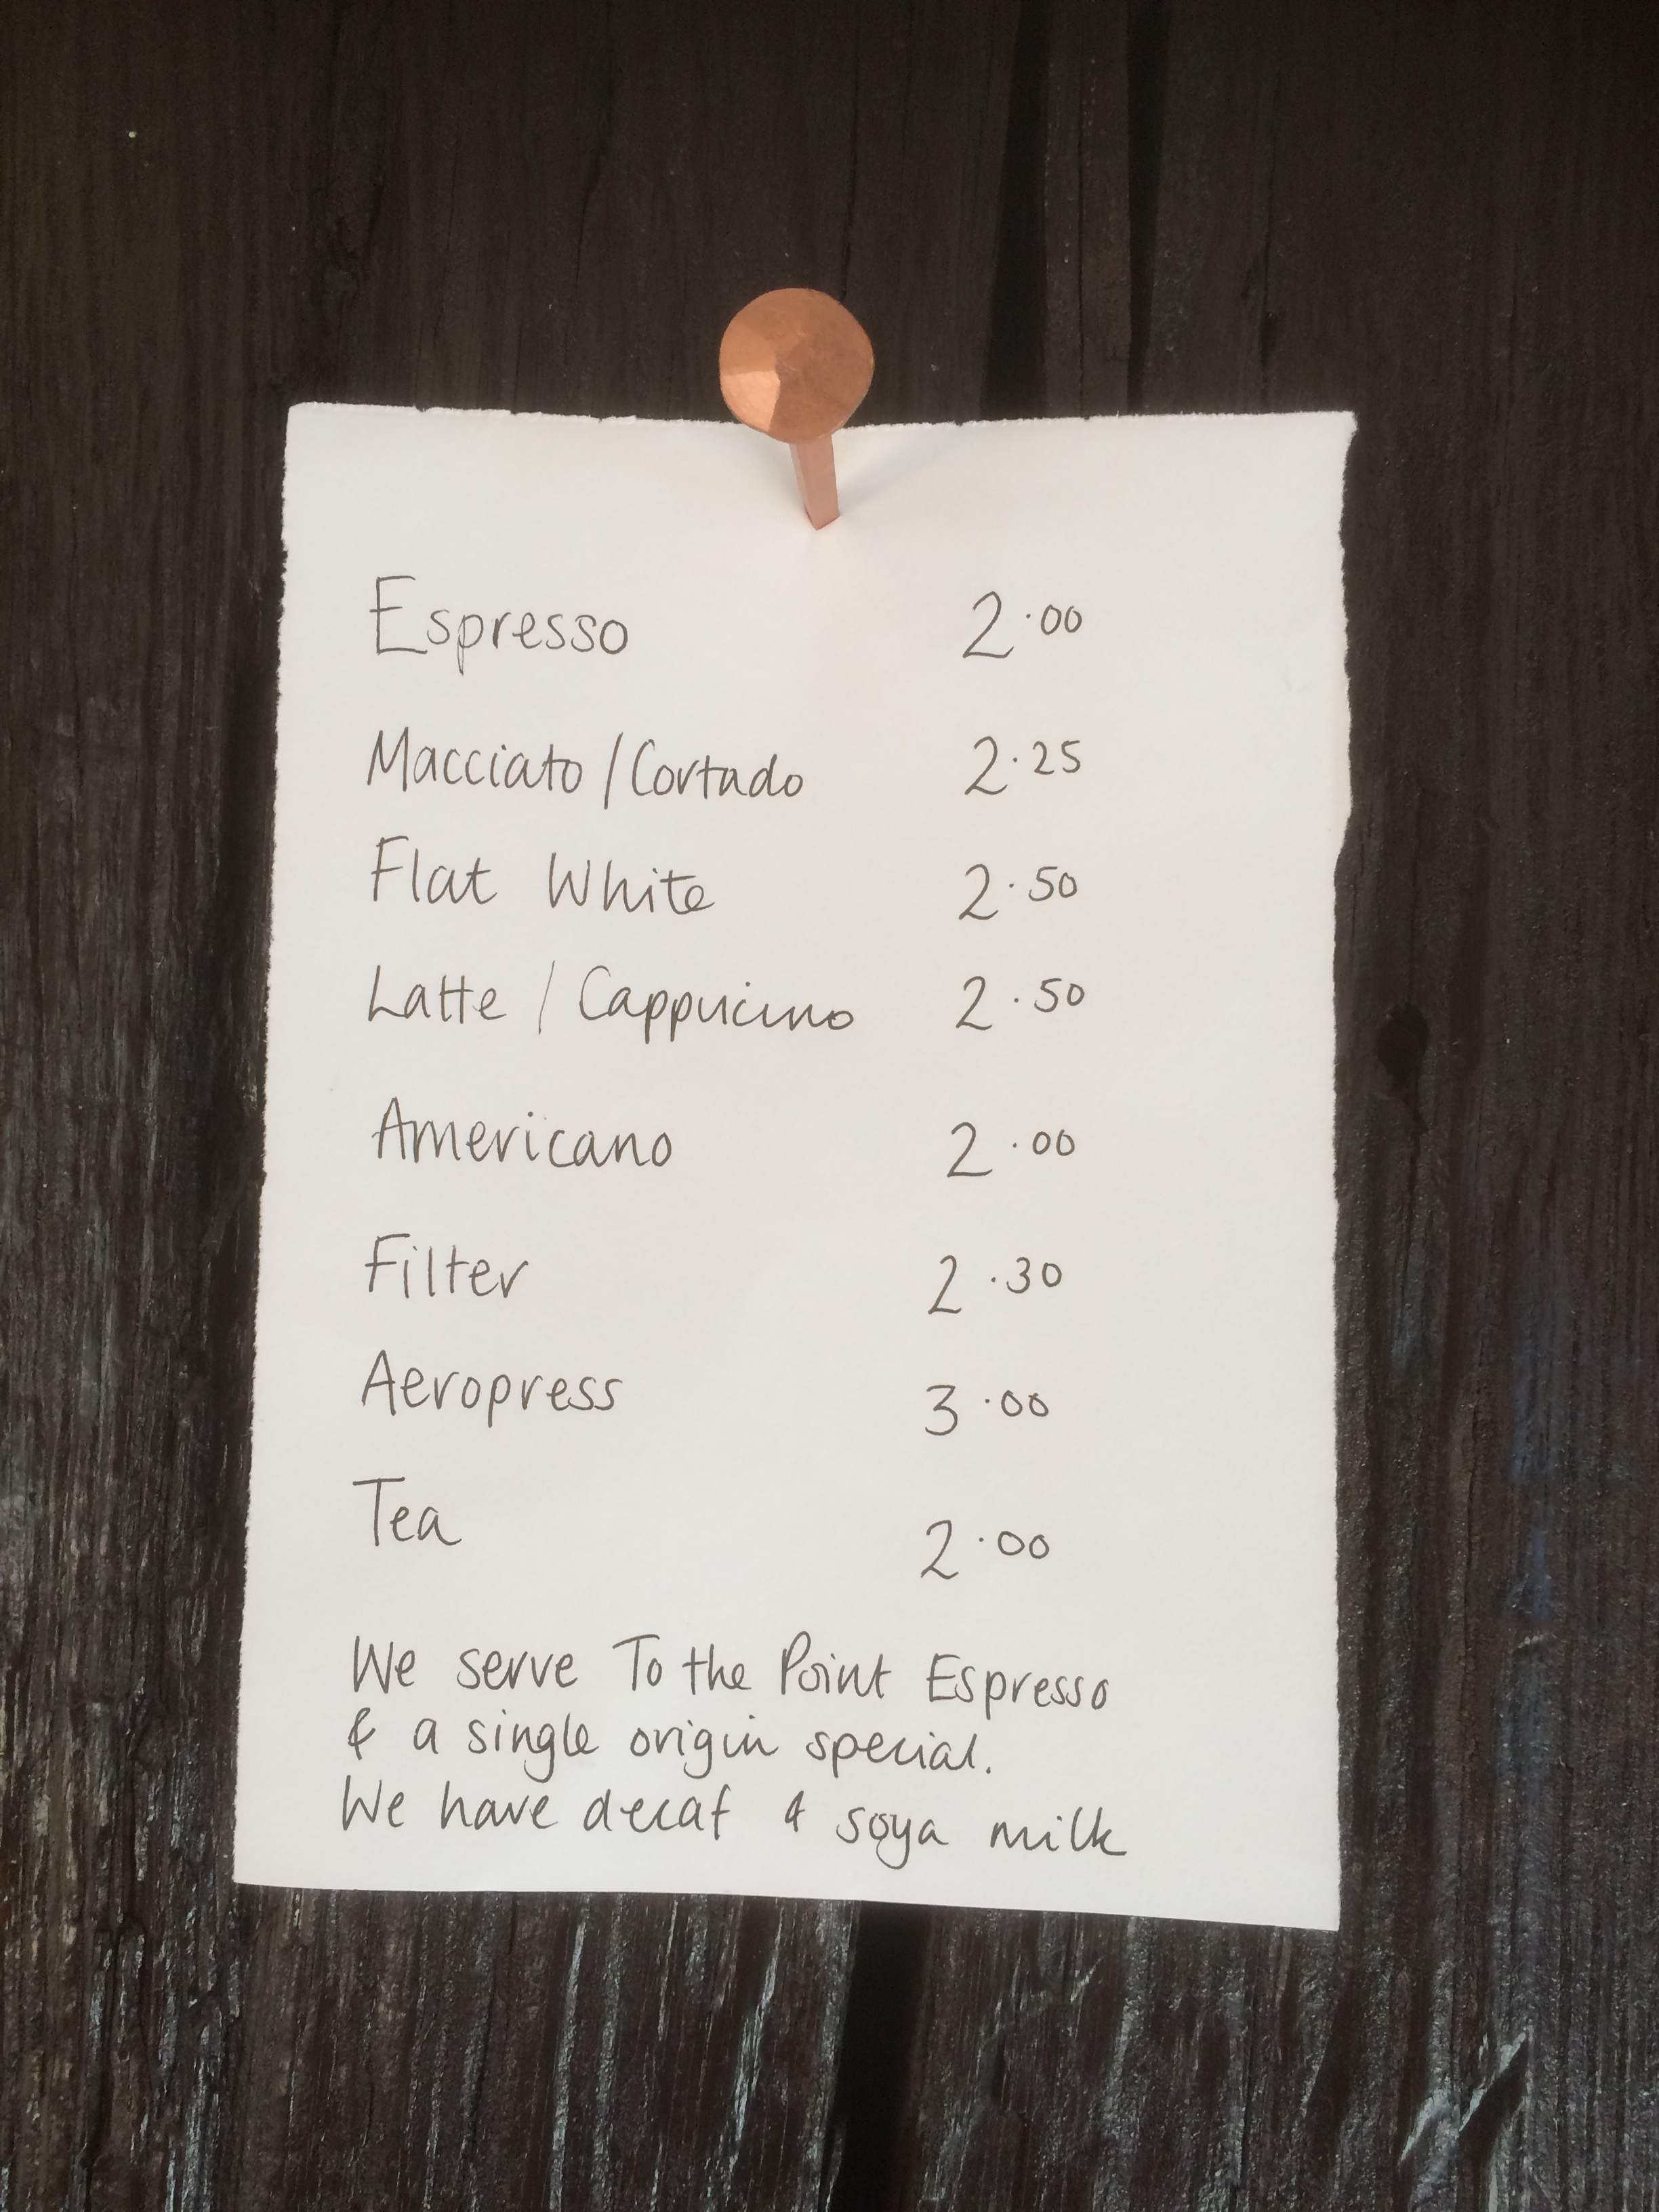 Espresso 2.00
Macciato / Cortado 2.25
Flat White 2.50
Latte / Cappucino 2.50
Americano 2.00
Filter 2.30
Aeropress 3.00
Tea 2.00
We serve To the Point Espresso
& a single origin special.
We have decaf & soya milk